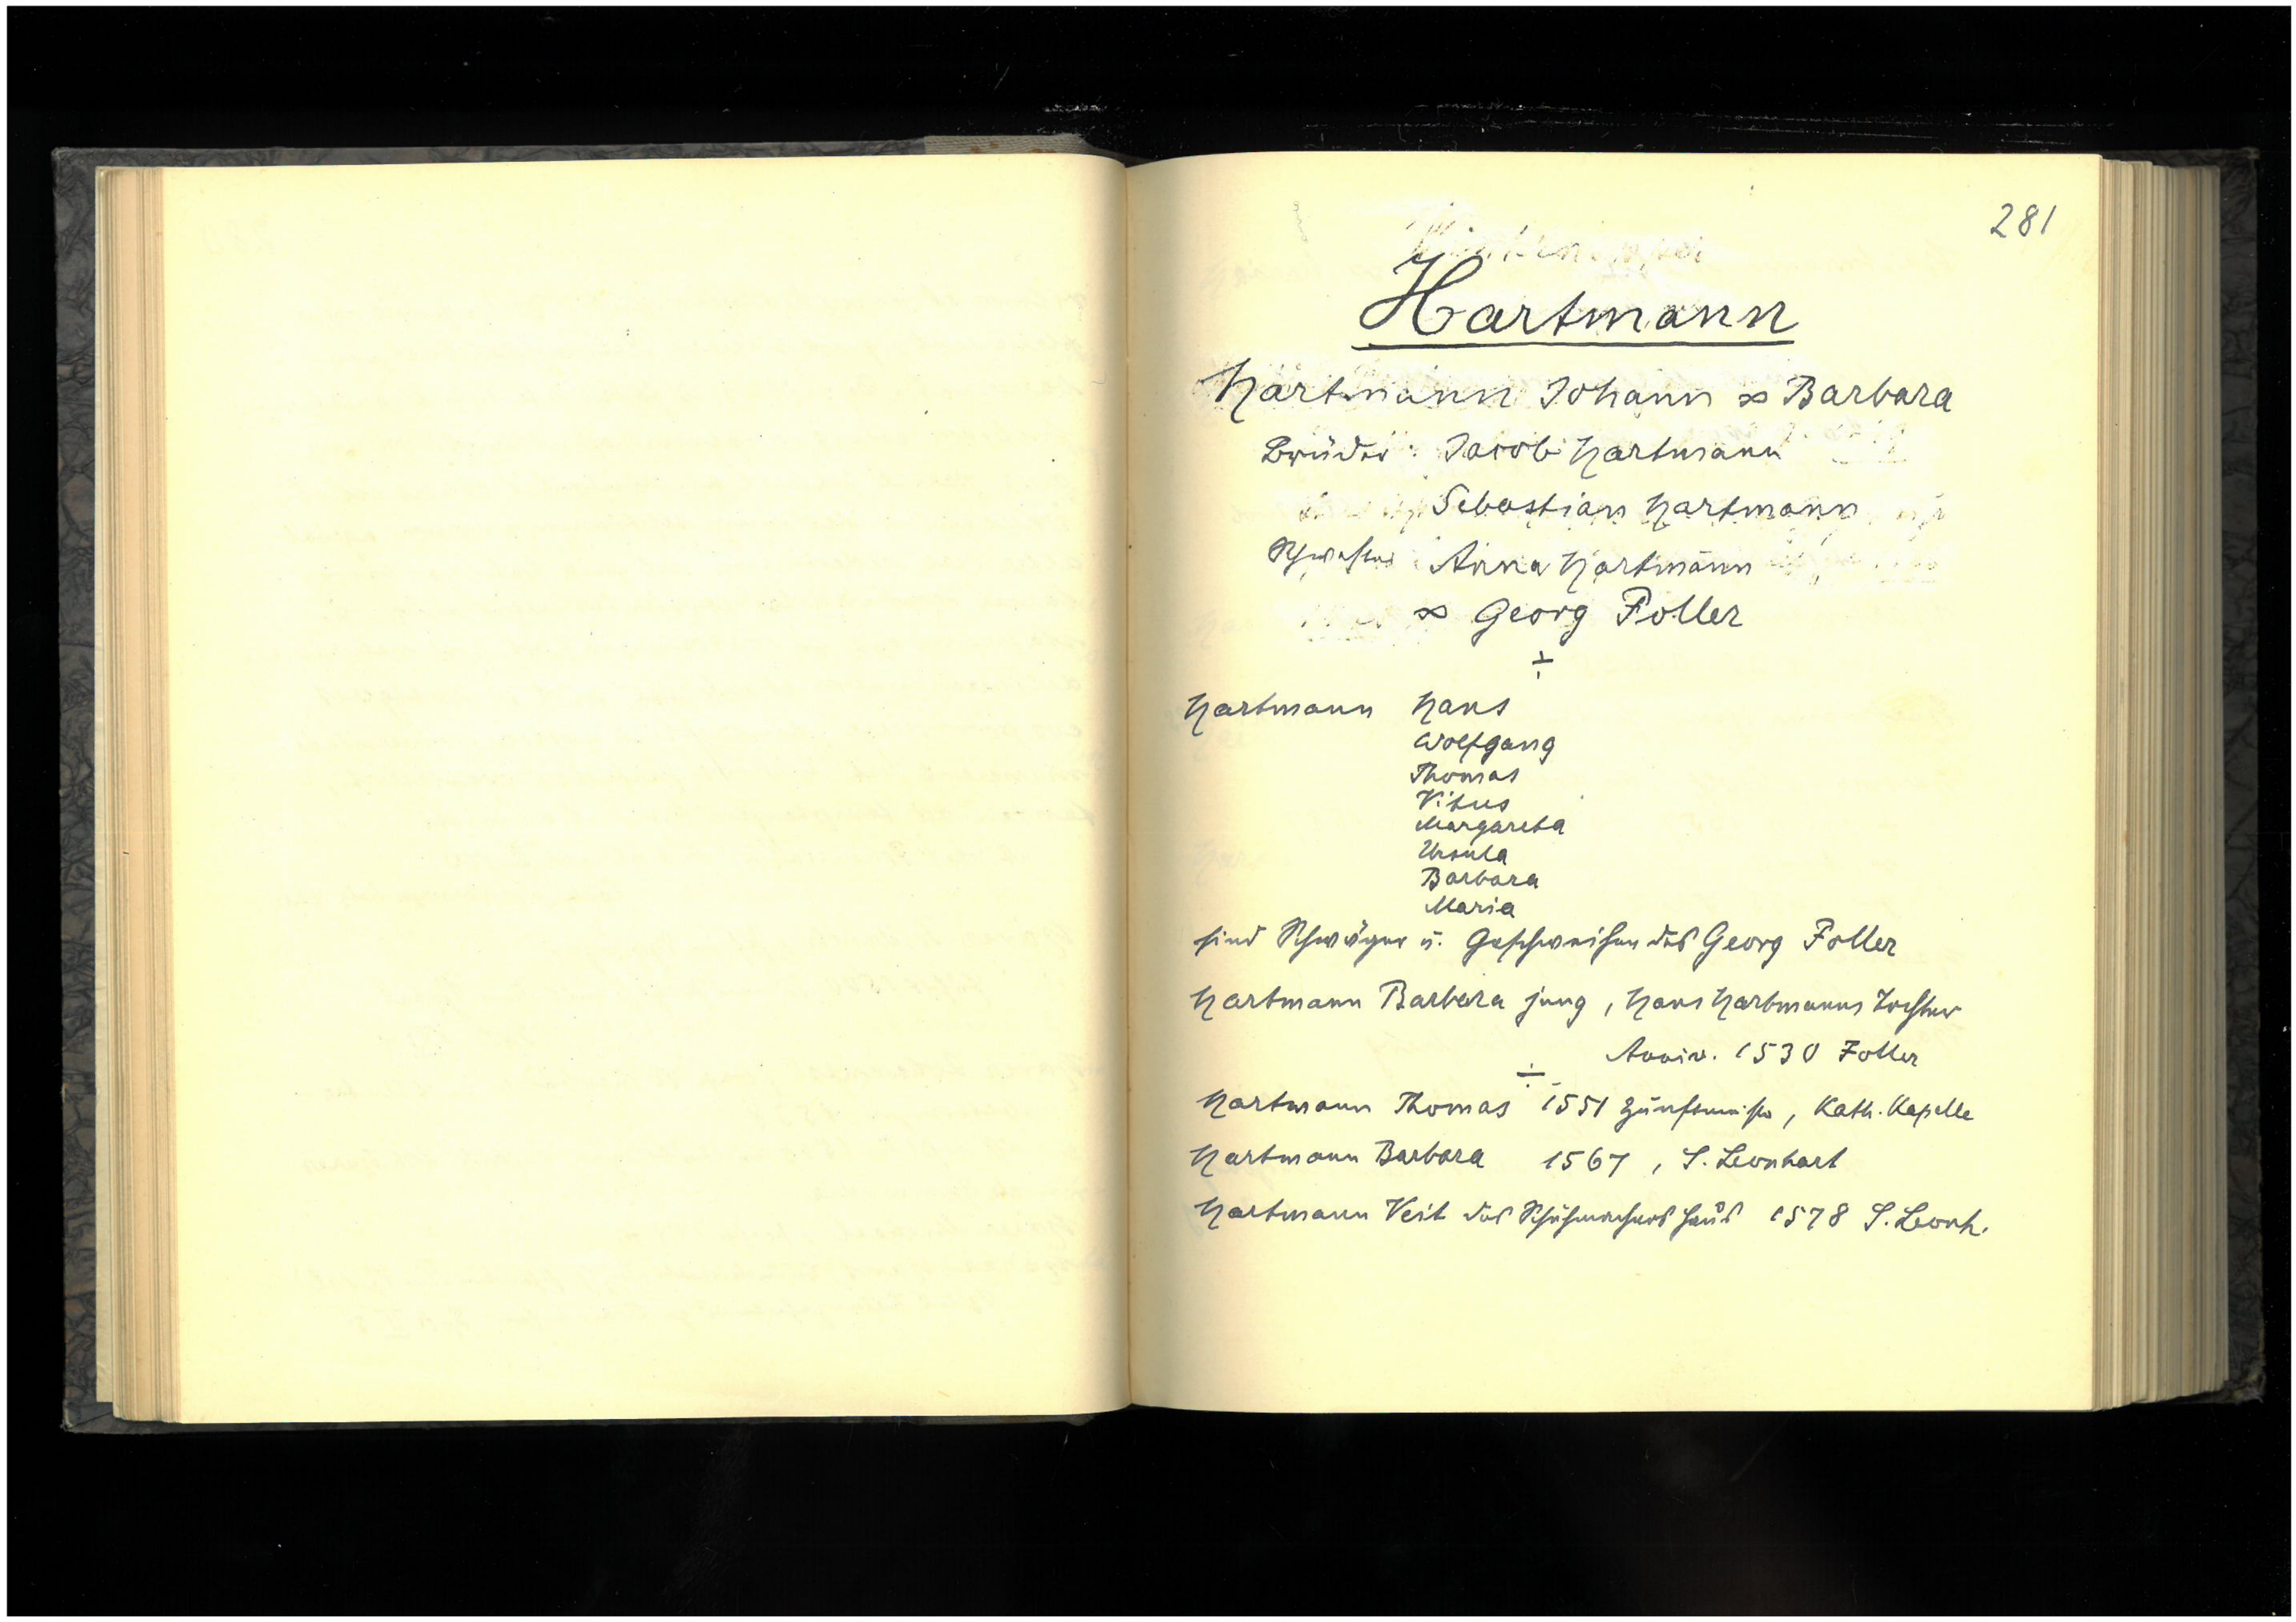 281
Hartmann
Hartmann Johann ∞ Barbara
Brüder: Jacob Hartmann
Sebastian Hartmann
Schwester: Anna Hartmann
∞ Georg Foller
÷
Hartmann Hans
Wolfgang
Thomas
Vitus
Margareta
Ursula
Barbara
Maria
sind Schwäger u. Geschweihen des Georg Foller
Hartmann Barbara jung, Hans Hartmanns Tochter
Anniv. 1530 Foller
÷
Hartmann Thomas 1551 Zunftmeister, Kath. Kapelle
Hartmann Barbara 1567, S. Leonhart
Hartmann Veit des Schuhmachers Haus 1578 S. Leonh.